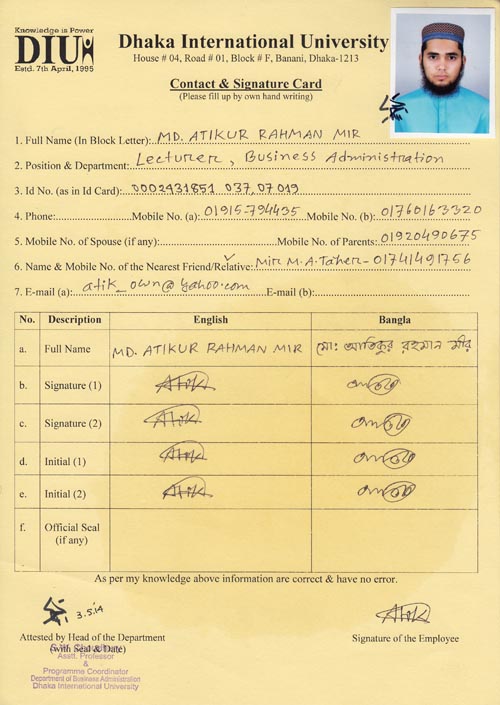 Knowledge is Power
DIU
Estd. 7th April, 1995
Dhaka International University
House # 04, Road # 01, Block # F, Banani, Dhaka-1213
Contact & Signature Card
(Please fill up by own hand writing)
1. Full Name (In Block Letter): MD. ATIKUR RAHMAN MIR
2. Position & Department: Lecturer, Business Administration
3. Id No. (as in Id Card): 0002431851 037 07 019
4. Phone: Mobile No. (a): 01915-794435 Mobile No. (b): 01760163320
5. Mobile No. of Spouse (if any): Mobile No. of Parents: 01920490675
6. Name & Mobile No. of the Nearest Friend/Relative: Mir M.A. Taher - 01741491756
7. E-mail (a): atik_own@yahoo.com E-mail (b):
No. Description English Bangla
a. Full Name MD. ATIKUR RAHMAN MIR মোঃ আতিকুর রহমান মীর
b. Signature (1) Atik
c. Signature (2) Atik
d. Initial (1) Atik
e. Initial (2) Atik
f. Official Seal
(if any)
As per my knowledge above information are correct & have no error.
3.5.14 Atik
Attested by Head of the Department Signature of the Employee
(with Seal & Date)
Asstt. Professor
&
Programme Coordinator
Department of Business Administration
Dhaka International University